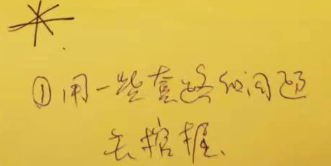 ①用一些套路的问题
去挖掘、